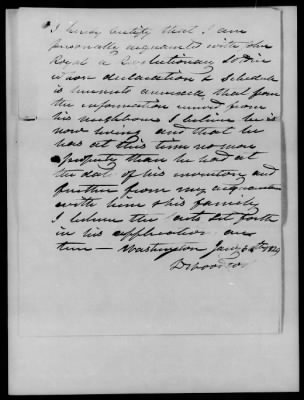 I hereby certify that I am
personally acquainted with John
Royal a Revolutionary Soldier
whose declaration & Schedule
is hereunto annexed, that from
the information recd from
his neighbours I believe he is
now living and that he
has at this time no more
property than he had at
the date of his inventory and
further from my acquaintance
with him & his family
I believe the facts set forth
in his application are
true — Washington Jany 1829